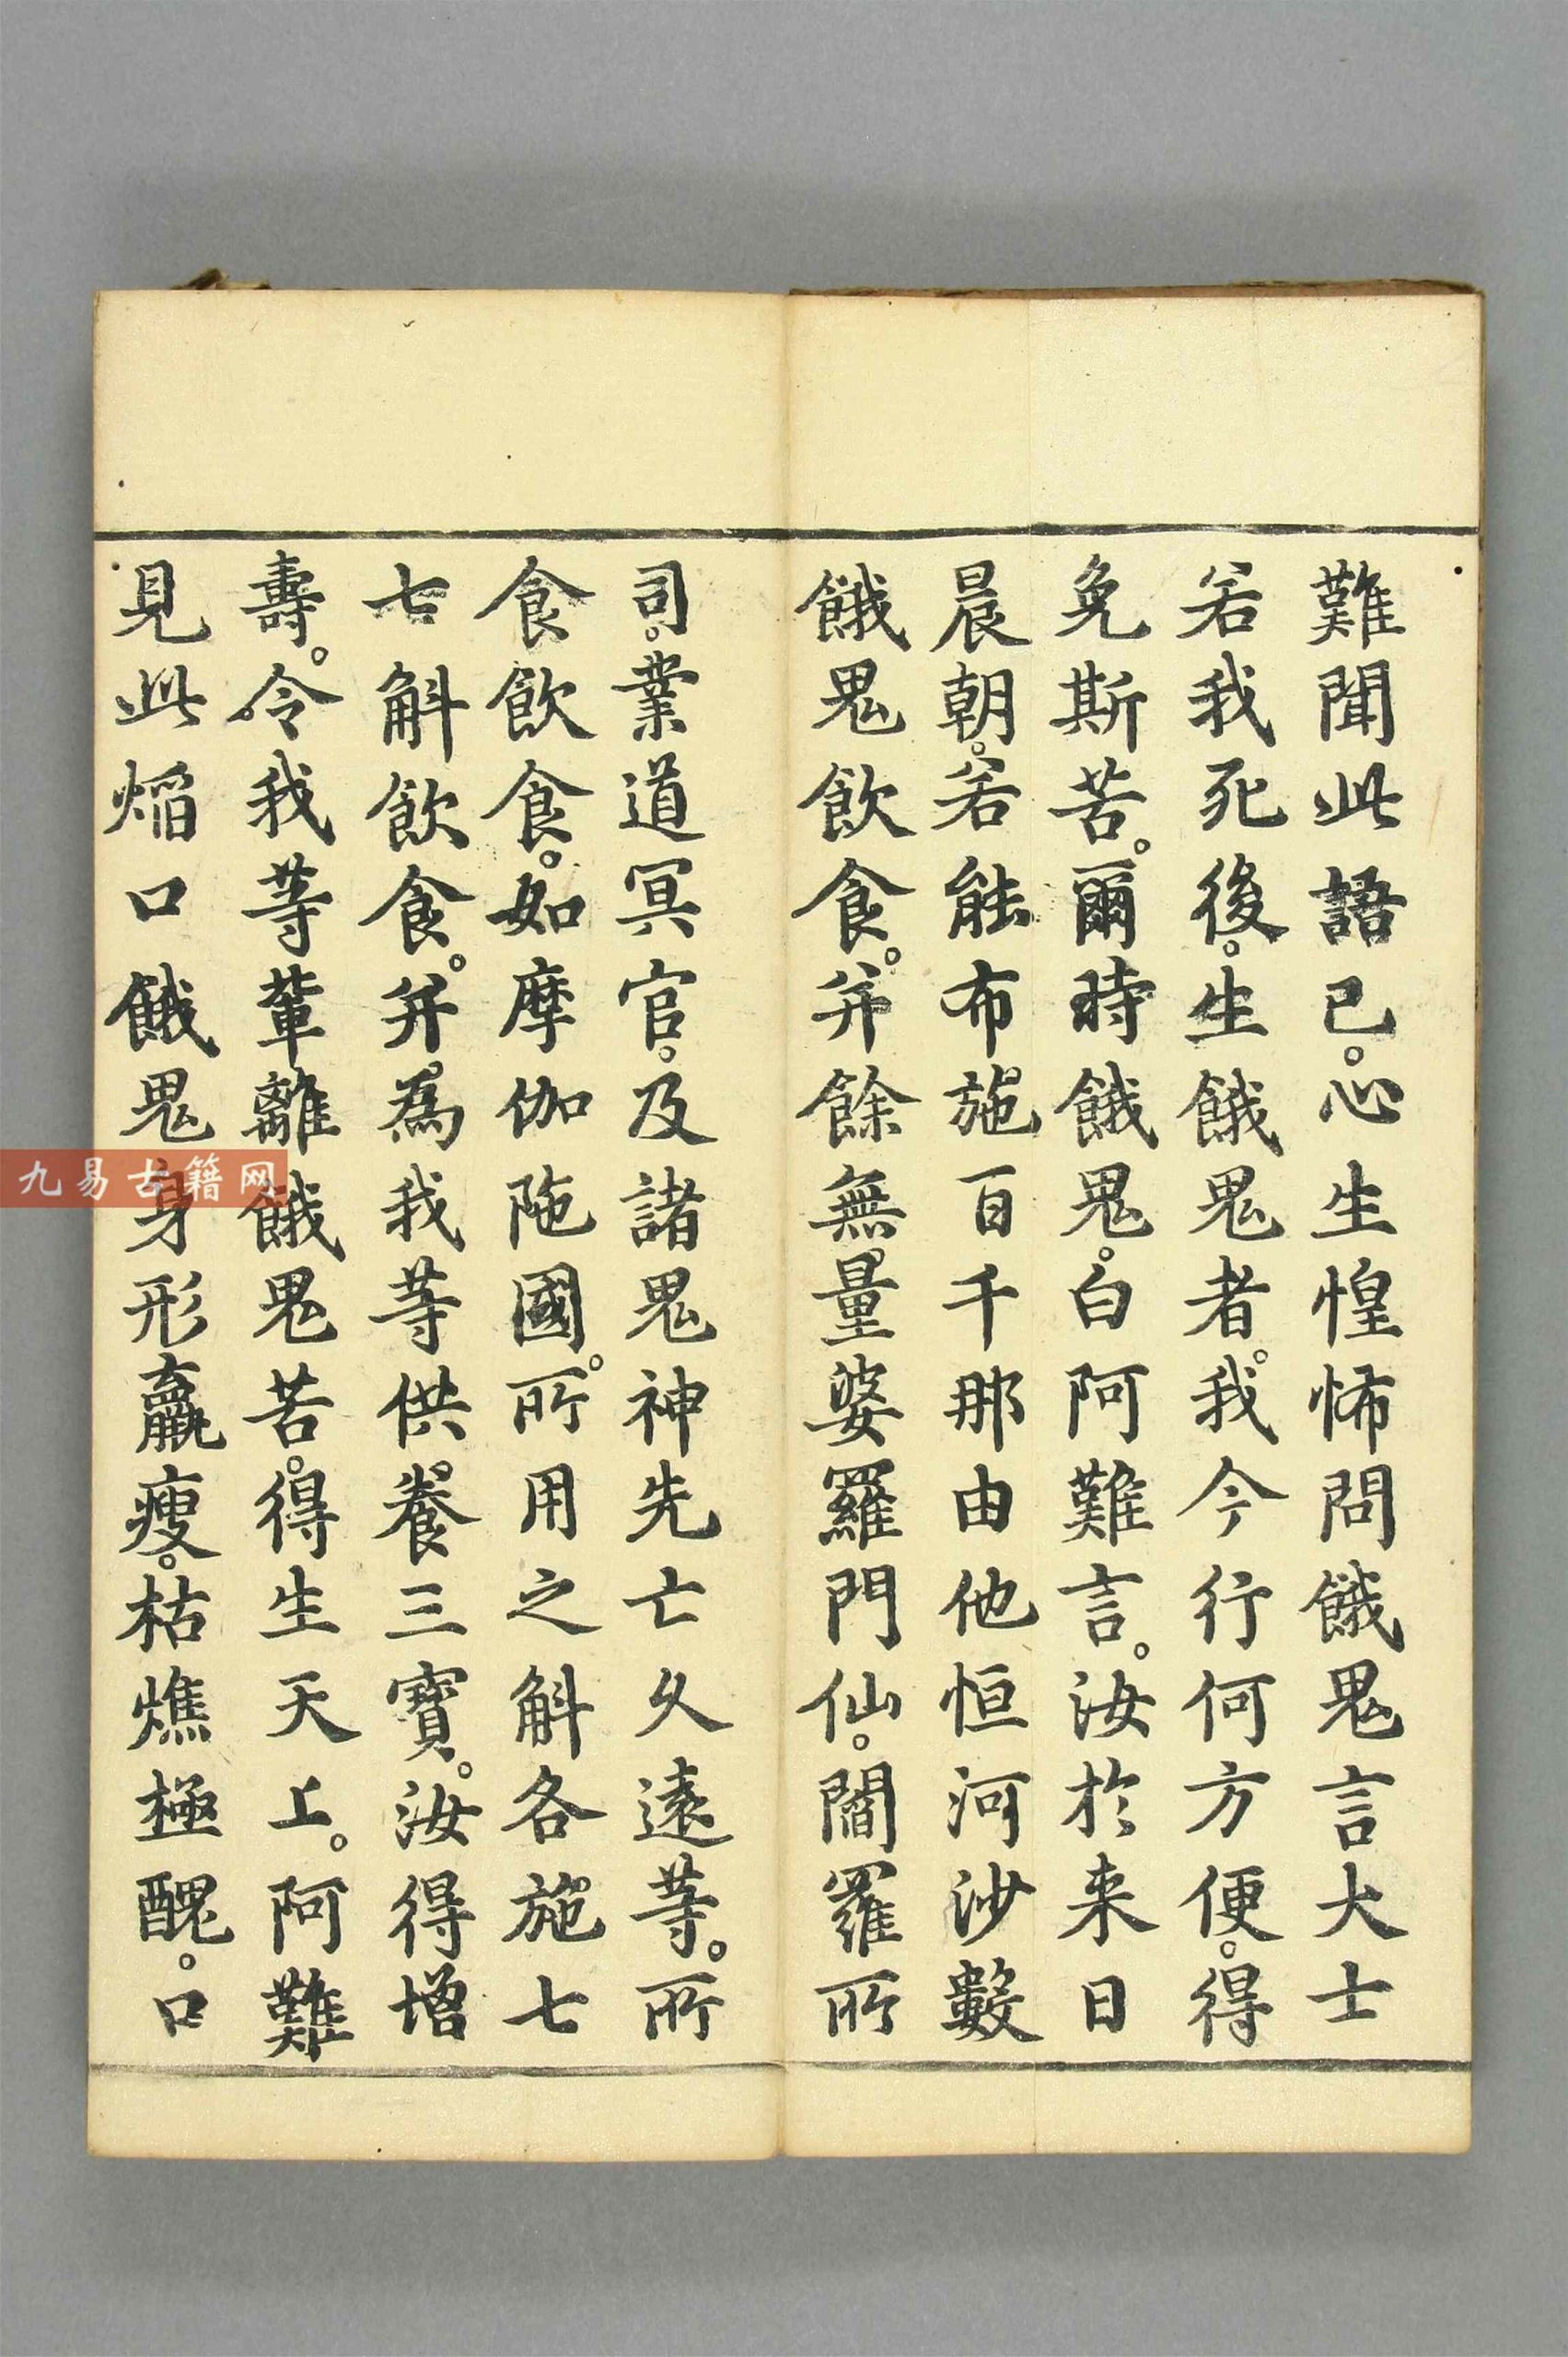 難聞此語已。心生惶怖問餓鬼言大士
若我死後。生餓鬼者。我今行何方便。得
免斯苦。爾時餓鬼。白阿難言。汝於来日
晨朝。若能布施百千那由他恒河沙數
餓鬼飲食。并餘無量婆羅門仙。閻羅所
司。業道冥官。及諸鬼神先亡久遠等。所
食飲食。如摩伽陁國。所用之斛各施七
七斛飲食。并為我等供養三寶。汝得增
壽。令我等輩離餓鬼苦。得生天上。阿難
見此熖口餓鬼身形羸瘦。枯燋極醜。口
九易古籍网